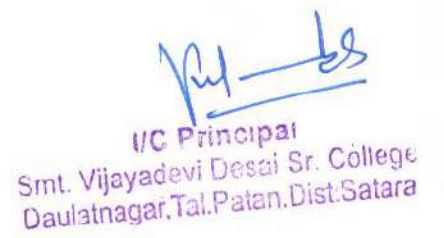 I/C Principal
Smt. Vijayadevi Desai Sr. College
Daulatnagar,Tal.Patan,Dist:Satara